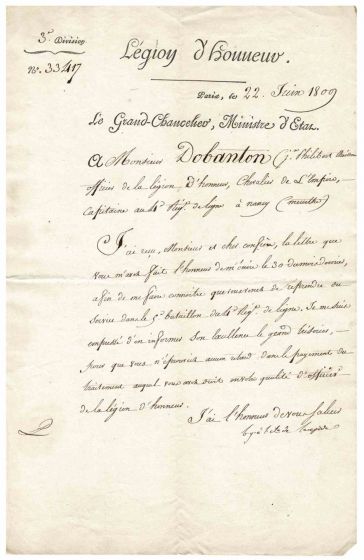 3e. Division
No. 33417
Légion d'honneur.
Paris, le 22 Juin 1809
Le Grand-Chancelier, Ministre d'Etat.
A Monsieur Dobanton (jn. philibert
officier de la légion d'honneur, Chevalier de L'Empire,
Capitaine au 4e Régt. de ligne à nancy (meurthe)
J'ai reçu, Monsieur et cher confrère, la lettre que
vous m'avez fait l'honneur de m'écrire le 30 du mois dernier,
afin de me faire connoître que vous venez de reprendre du
service dans le 5e bataillon du 4e Régt. de ligne. Je me suis
empressé d'en informer Son Excellence le grand trésorier,
pour que vous n'éprouviez aucun retard dans le payement du
traitement auquel vous avez droit en votre qualité d'officier
de la légion d'honneur.
J'ai l'honneur de vous saluer